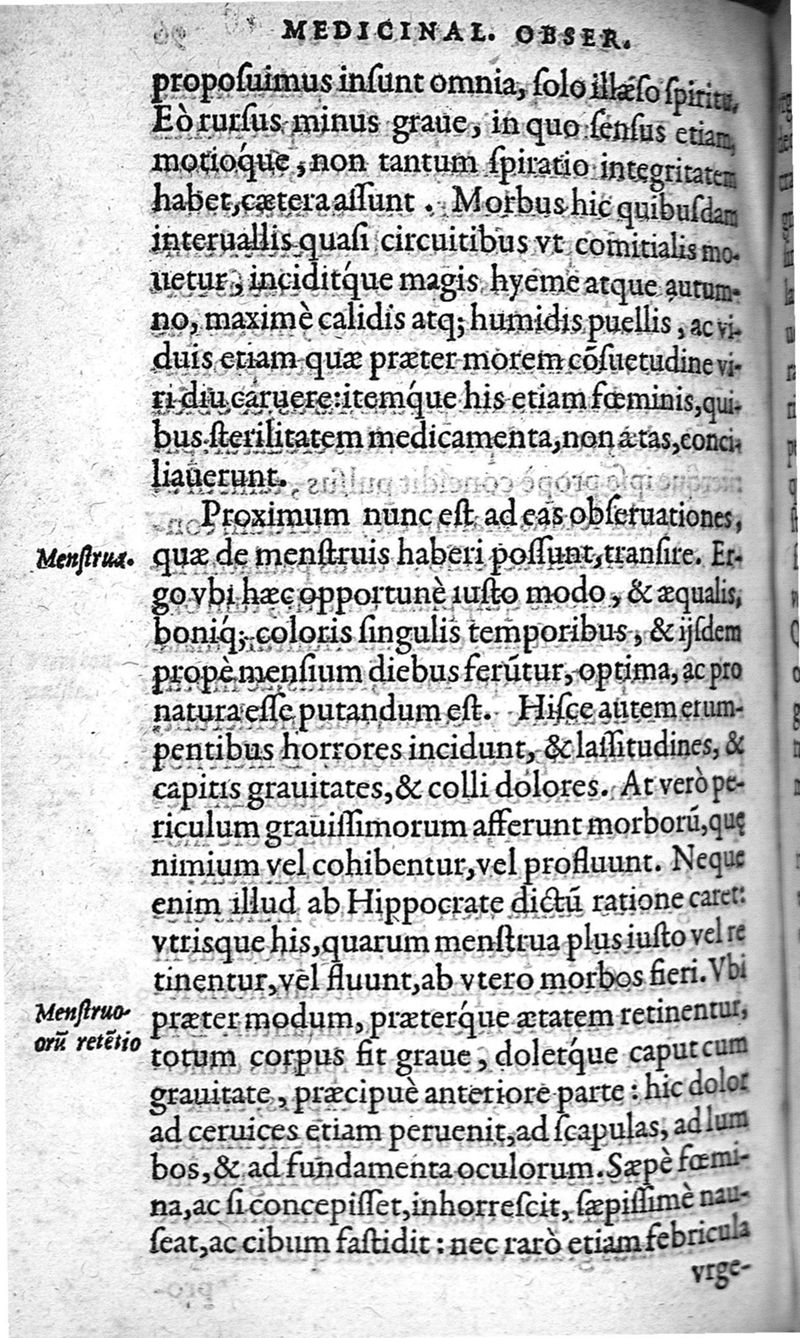 MEDICINAL. OBSER.
propoſuimus inſunt omnia, ſolo illæſo ſpiritu,
Eò rurſus minus graue, in quo ſenſus etiam,
motioq́ue, non tantum ſpiratio integritatem
habet, cætera aſſunt. Morbus hic quibuſdam
interuallis quaſi circuitibus vt comitialis mo-
uetur, inciditq́ue magis hyeme atque autum-
no, maximè calidis atq; humidis puellis, ac vi-
duis etiam quæ præter morem cõſuetudine vi-
ri diu caruere: itemq́ue his etiam fœminis, qui-
bus ſterilitatem medicamenta, non ætas, conci-
liauerunt.
Proximum nunc eſt ad eas obſeruationes,
Menſtrua.
quæ de menſtruis haberi poſſunt, tranſire. Er-
go vbi hæc opportunè iuſto modo, & æqualis,
boniq́; coloris ſingulis temporibus, & ijſdem
propè menſium diebus ferũtur, optima, ac pro
natura eſſe putandum eſt. Hiſce autem erum-
pentibus horrores incidunt, & laſſitudines, &
capitis grauitates, & colli dolores. At verò pe-
riculum grauiſſimorum afferunt morborũ, quę
nimium vel cohibentur, vel profluunt. Neque
enim illud ab Hippocrate dictũ ratione caret:
vtrisque his, quarum menſtrua plus iuſto vel re
tinentur, vel fluunt, ab vtero morbos fieri. Vbi
Menſtruo-
orũ retẽtio
præter modum, præterq́ue ætatem retinentur,
totum corpus fit graue, doletq́ue caput cum
grauitate, præcipuè anteriore parte: hic dolor
ad ceruices etiam peruenit, ad ſcapulas, ad lum
bos, & ad fundamenta oculorum. Sæpè fœmi-
na, ac ſi concepiſſet, inhorreſcit, ſæpiſſimè nau-
ſeat, ac cibum faſtidit: nec rarò etiam febricula
vrge-